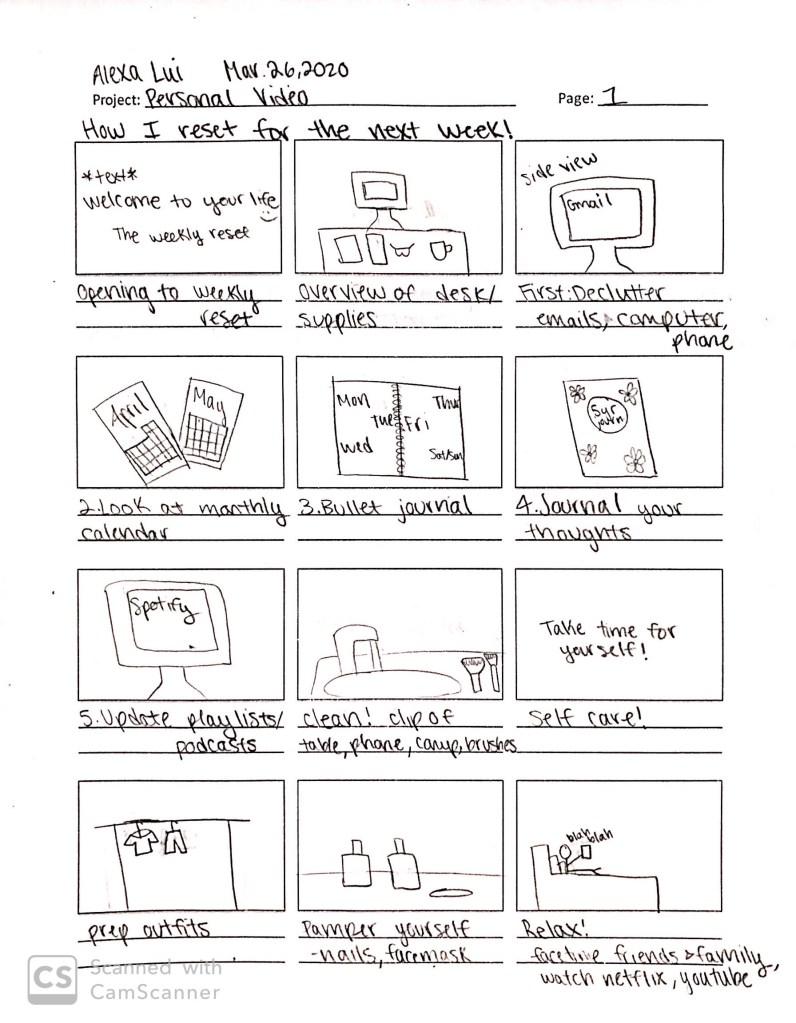 Alexa Lui Mar. 26, 2020
Project: Personal Video Page: 1
How I reset for the next week!
*text*
Welcome to your life
The weekly reset
Opening to weekly
reset
Overview of desk/
supplies
side view
Gmail
First: Declutter
emails, computer,
phone
April
May
2. Look at monthly
calendar
Mon
Tue
Wed
Thur
Fri
Sat/Sun
3. Bullet journal
5yr
journ
4. Journal your
thoughts
Spotify
5. Update playlists/
podcasts
clean! clip of
table, phone, brushes
Take time for
yourself!
self care!
prep outfits
Pamper yourself
-nails, facemask
blah blah
Relax!
facetime friends & family,
watch netflix, youtube
CS Scanned with
CamScanner